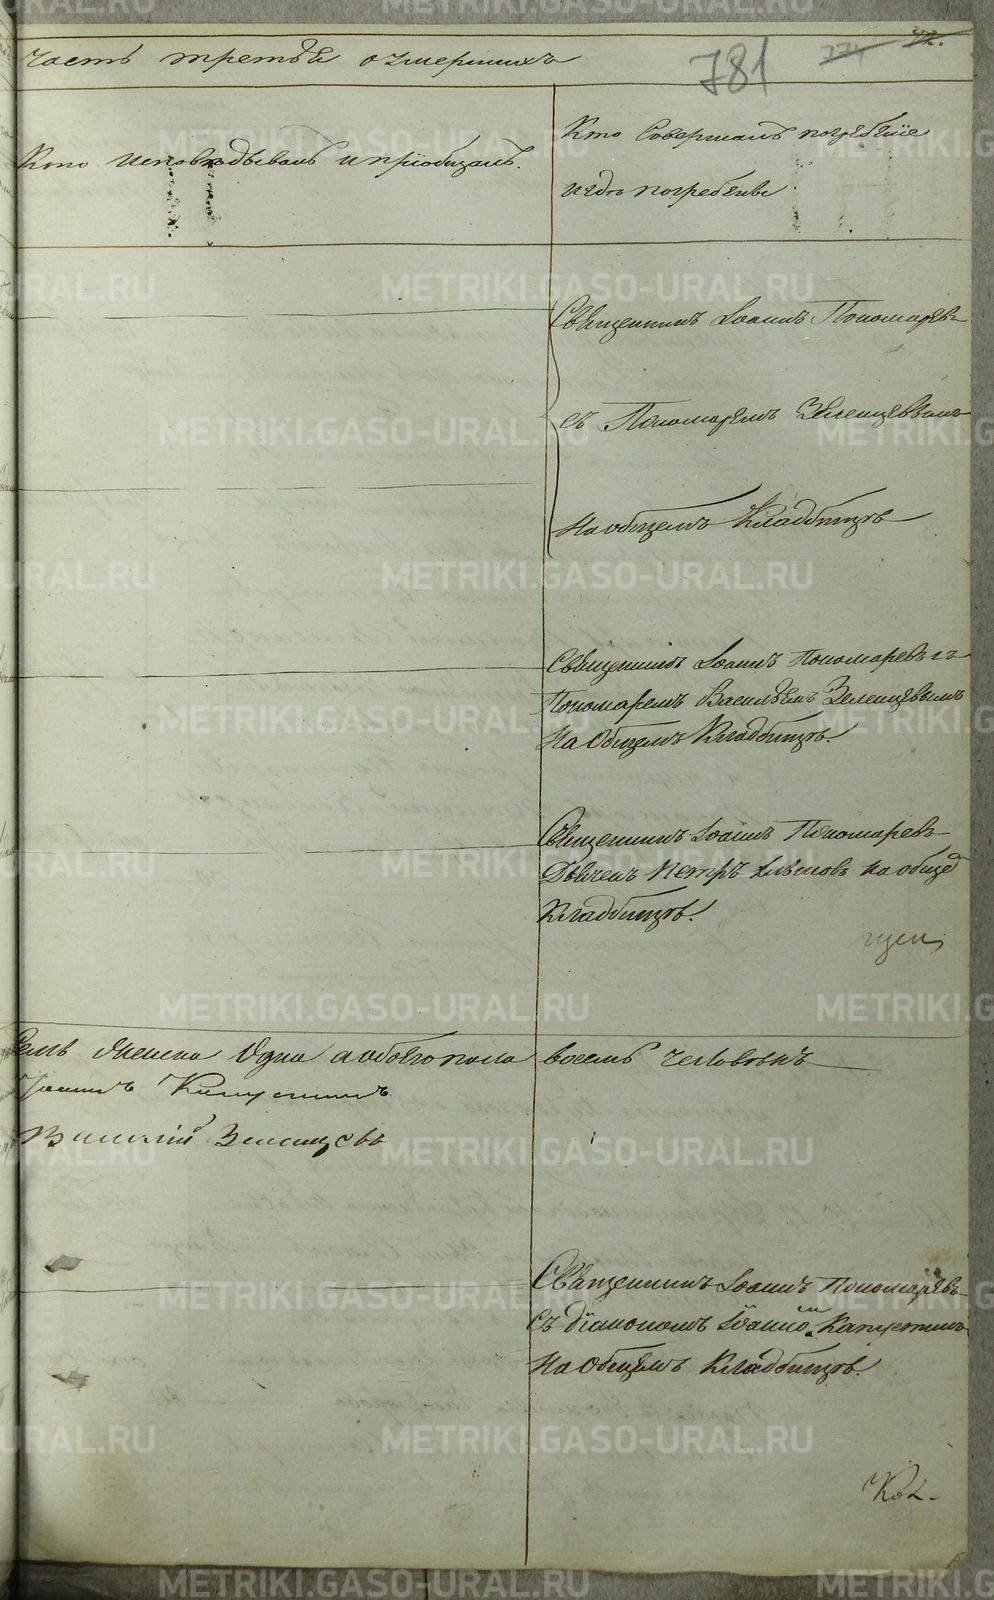 Часть третья о умершихъ
781
Кто исповѣдывалъ и пріобщалъ.
Кто совершалъ погребеніе
и гдѣ погребены
Священникъ Іоаннъ Пономаревъ
съ Пономаремъ Зеленцевымъ
На общемъ Кладбищѣ
Священникъ Іоаннъ Пономаревъ съ
Пономаремъ Васильемъ Зеленцевымъ
На Общемъ Кладбищѣ.
Священникъ Іоаннъ Пономаревъ
Дьячекъ Петръ на общем
Кладбищѣ.
женска Одна а обоего пола восемь человѣкъ
Іоаннъ Капустинъ
Василій Зеленцовъ
Священникъ Іоаннъ Пономаревъ
Съ діакономъ Іоанномъ Капустинымъ
На Общемъ Кладбищѣ.
METRIKI.GASO-URAL.RU